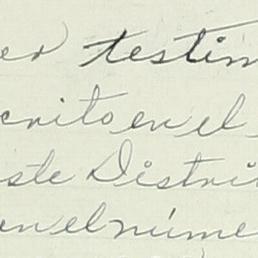 er testim
crito en el
ste Distri
en el núme